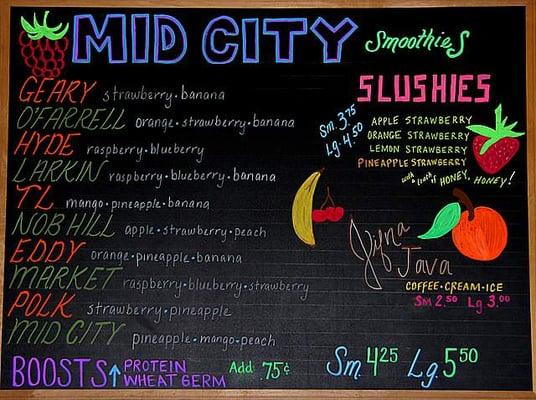 MID CITY Smoothies
GEARY strawberry•banana
O'FARRELL orange•strawberry•banana
HYDE raspberry•blueberry
LARKIN raspberry•blueberry•banana
TL mango•pineapple•banana
NOB HILL apple•strawberry•peach
EDDY orange•pineapple•banana
MARKET raspberry•blueberry•strawberry
POLK strawberry•pineapple
MID CITY pineapple•mango•peach
BOOSTS↑ PROTEIN
WHEAT GERM
Add .75¢
SLUSHIES
Sm. 3.75
Lg. 4.50
APPLE STRAWBERRY
ORANGE STRAWBERRY
LEMON STRAWBERRY
PINEAPPLE STRAWBERRY
with a touch of HONEY, HONEY!
Java
COFFEE•CREAM•ICE
Sm 2.50 Lg 3.00
Sm. 4.25 Lg. 5.50